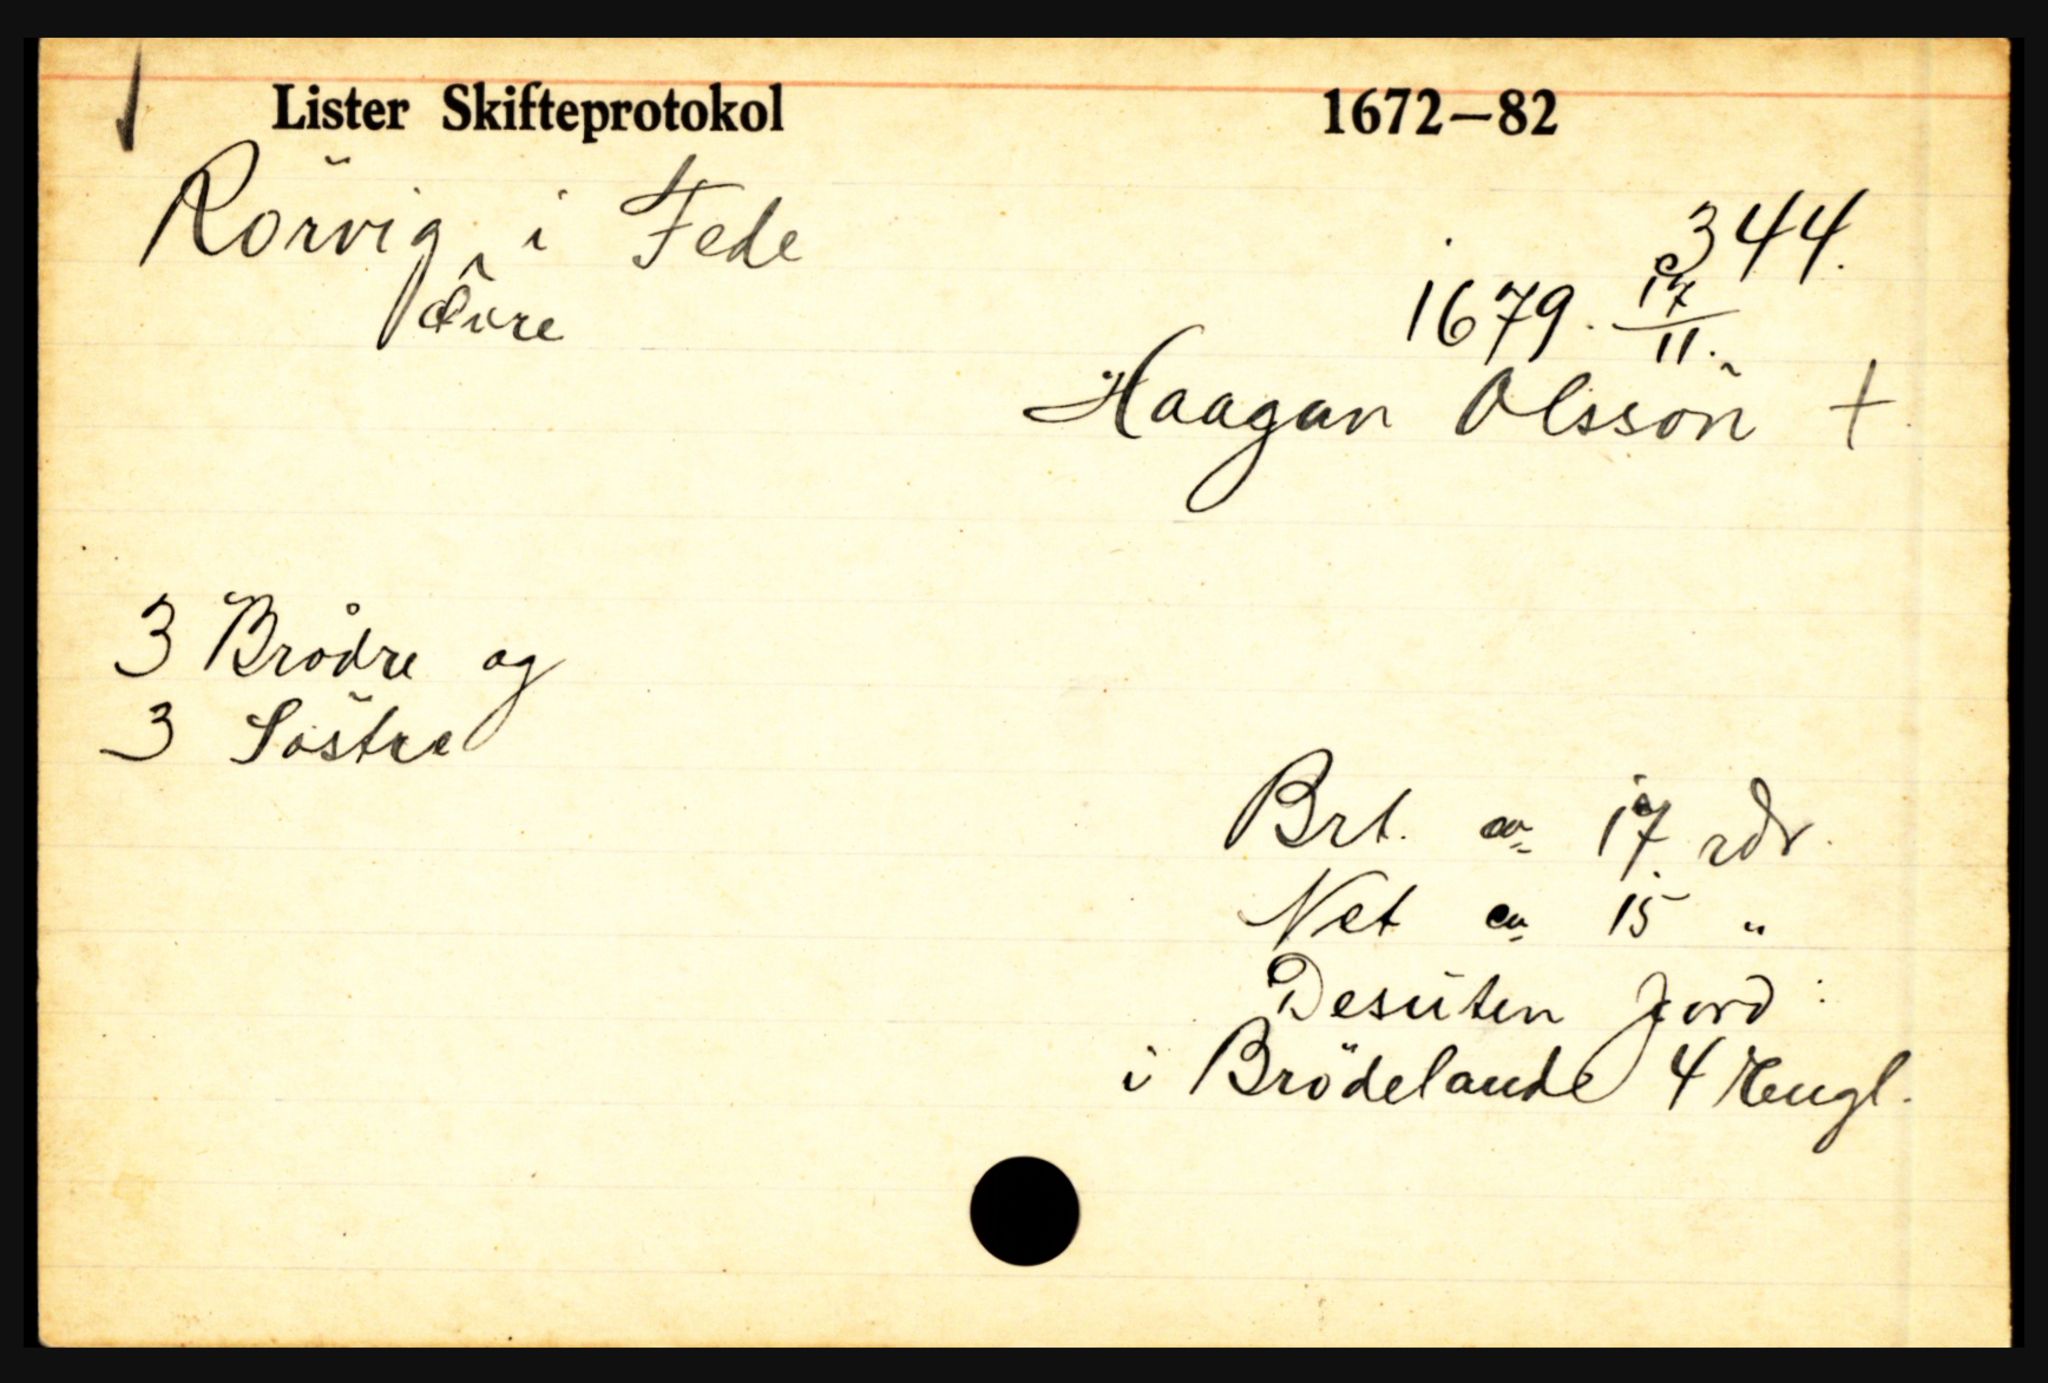 Lister Skifteprotokol 1672—82
Rörvig i Fede
Øvre
344.
1679. 17/11.
Haagan Olssön +
3 Brödre og
3 Söstre
Brt. ca 17 rdr.
Net ca 15 "
Desuten Jord:
i Brödelande 4 Engl.